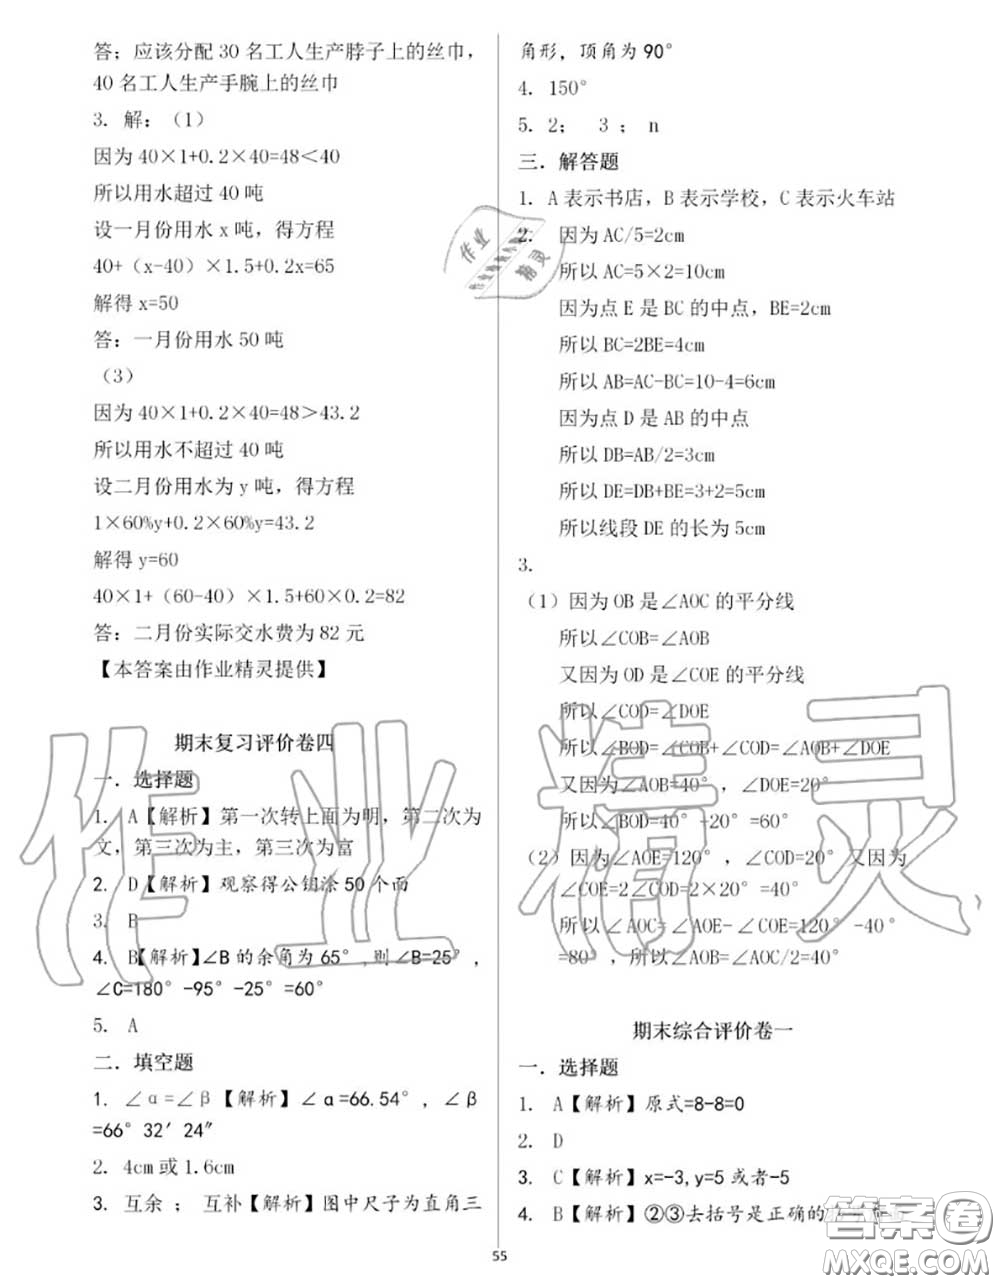 答；应该分配 30 名工人生产脖子上的丝巾，
40 名工人生产手腕上的丝巾
3. 解：（1）
因为 40×1+0.2×40=48＜40
所以用水超过 40 吨
设一月份用水 x 吨，得方程
40+（x-40）×1.5+0.2x=65
解得 x=50
答：一月份用水 50 吨
（3）
因为 40×1+0.2×40=48＞43.2
所以用水不超过 40 吨
设二月份用水为 y 吨，得方程
1×60%y+0.2×60%y=43.2
解得 y=60
40×1+（60-40）×1.5+60×0.2=82
答：二月份实际交水费为 82 元
【本答案由作业精灵提供】
期末复习评价卷四
一．选择题
1. A【解析】第一次转上面为明，第二次为
文，第三次为主，第三次为富
2. D【解析】观察得公钥涂 50 个面
3. B
4. B【解析】∠B 的余角为 65°,则∠B=25°,
∠C=180°-95°-25°=60°
5. A
二．填空题
1. ∠α=∠β【解析】∠α=66.54°, ∠β
=66°32′24″
2. 4cm 或 1.6cm
3. 互余 ； 互补【解析】图中尺子为直角三
角形，顶角为 90°
4. 150°
5. 2； 3 ； n
三．解答题
1. A 表示书店，B 表示学校，C 表示火车站
2. 因为 AC/5=2cm
所以 AC=5×2=10cm
因为点 E 是 BC 的中点，BE=2cm
所以 BC=2BE=4cm
所以 AB=AC-BC=10-4=6cm
因为点 D 是 AB 的中点
所以 DB=AB/2=3cm
所以 DE=DB+BE=3+2=5cm
所以线段 DE 的长为 5cm
3.
（1）因为 OB 是∠AOC 的平分线
所以∠COB=∠AOB
又因为 OD 是∠COE 的平分线
所以∠COD=∠DOE
所以∠BOD=∠COB+∠COD=∠AOB+∠DOE
又因为∠AOB=40°, ∠DOE=20°
所以∠BOD=40°+20°=60°
（2）因为∠AOE=120°, ∠COD=20° 又因为
∠COE=2∠COD=2×20°=40°
所以∠AOC=∠AOE-∠COE=120°-40°
=80°, 所以∠AOB=∠AOC/2=40°
期末综合评价卷一
一．选择题
1. A【解析】原式=8-8=0
2. D
3. C【解析】x=-3,y=5 或者-5
4. B【解析】②③去括号是正确的
55
作业精灵
作业精灵
答案圈
MXQE.COM